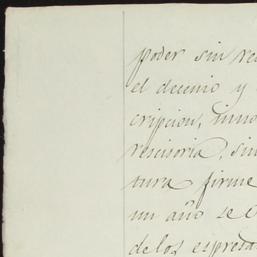 poder sin re
el decenio y
cripcion, nin
rescisoria, sin
tura firme
un año se
de los espresa